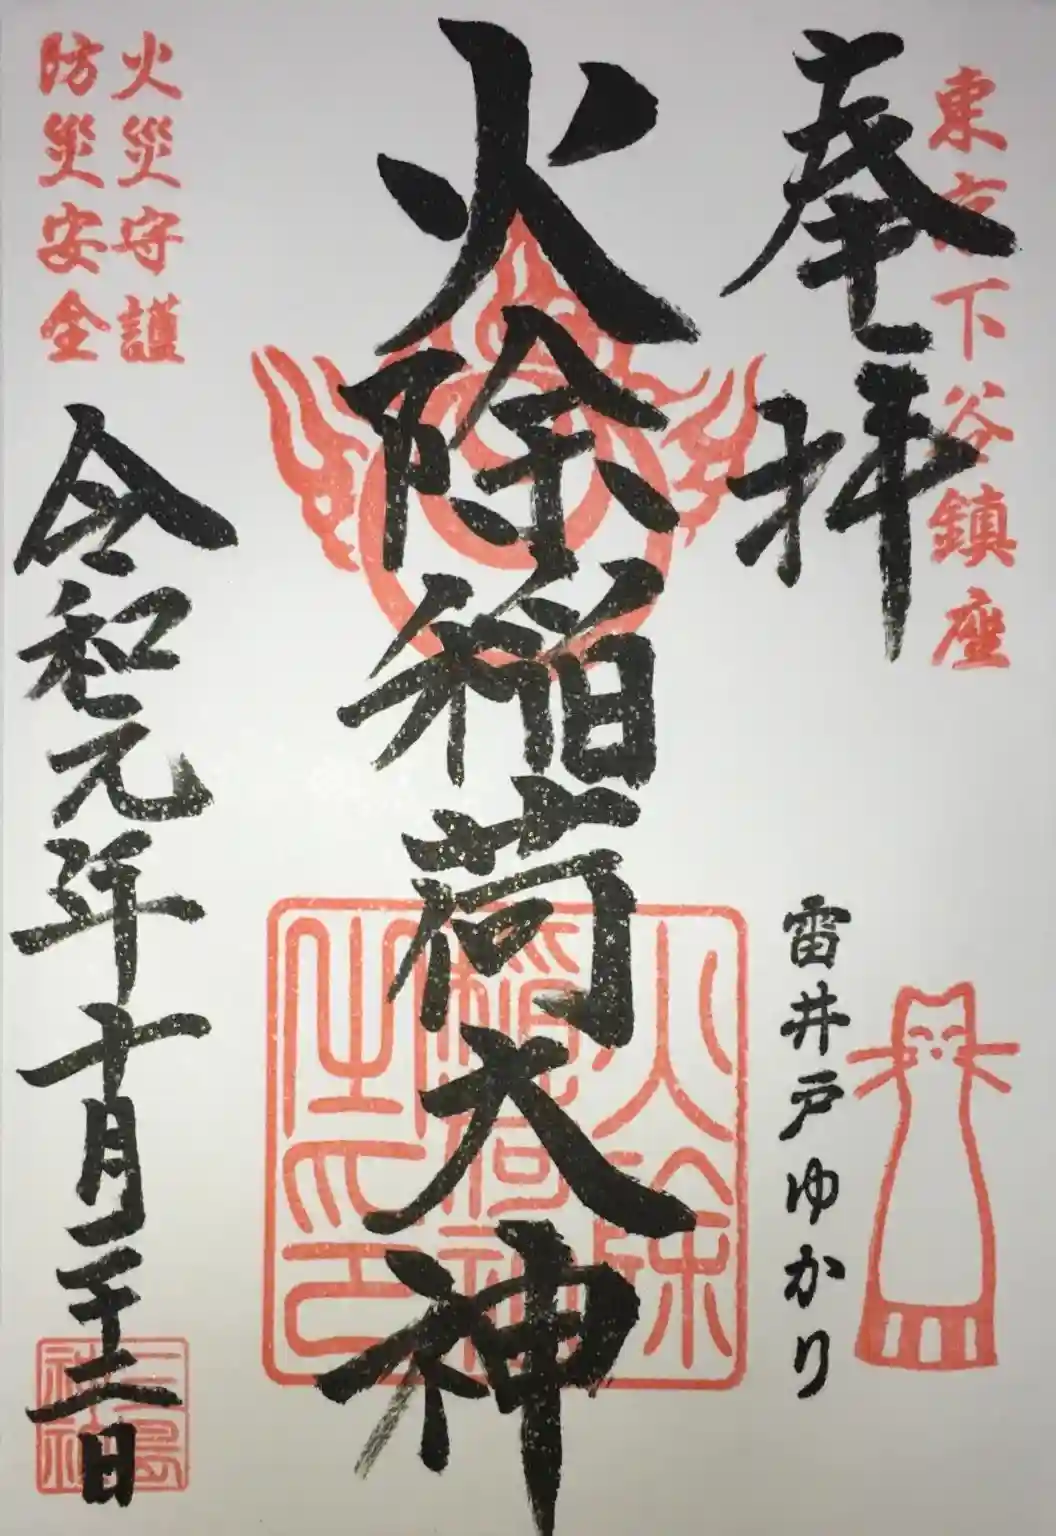 東京下谷鎮座
奉拝
雷井戸ゆかり
火除稲荷大神
火除
稲荷神
之印
火災守護
防災安全
令和元年十月二十二日
三島
神社